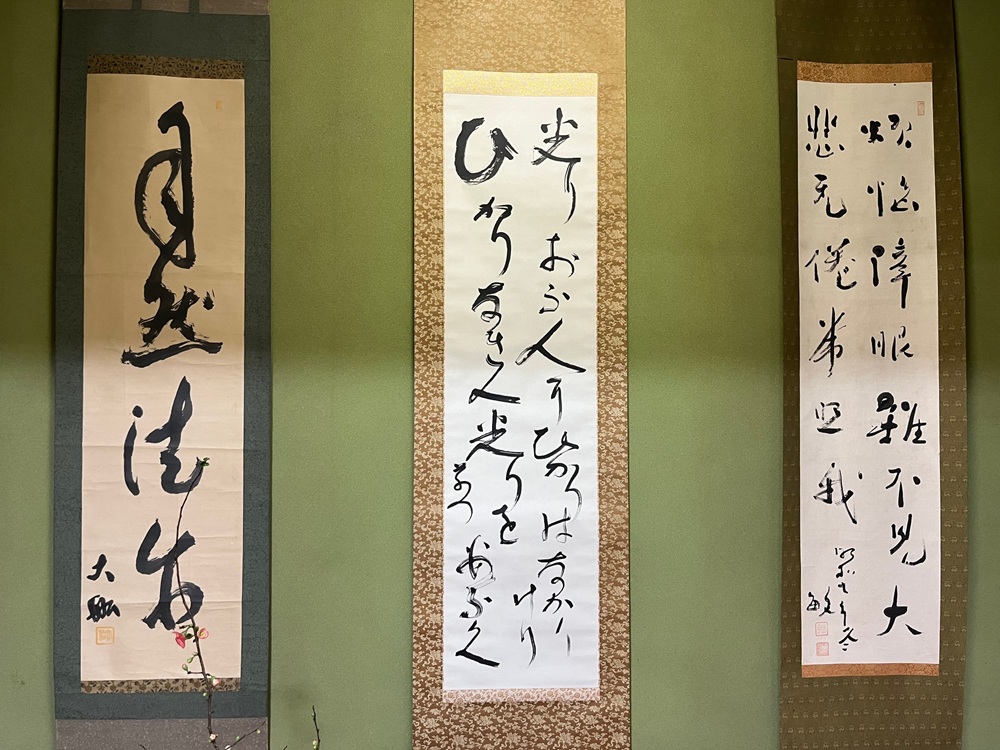 煩悩障眼雖不見大
悲无倦常照我
敏
光りおふ人にひかりはなかりけり
ひかりなき人光りを
自然法爾
大拙